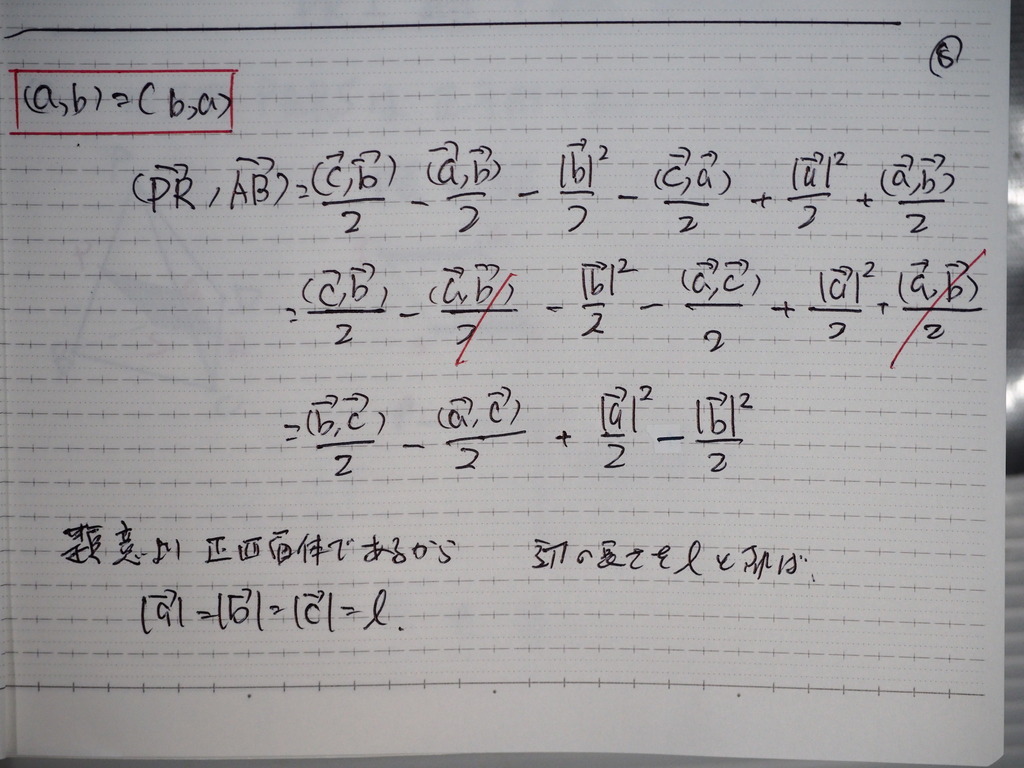 ⑥
(a,b)=(b,a)
(\vec{PR},\vec{AB})=\frac{(\vec{c},\vec{b})}{2}-\frac{(\vec{a},\vec{b})}{2}-\frac{|\vec{b}|^2}{2}-\frac{(\vec{c},\vec{a})}{2}+\frac{|\vec{a}|^2}{2}+\frac{(\vec{a},\vec{b})}{2}
=\frac{(\vec{c},\vec{b})}{2}-\frac{(\vec{a},\vec{b})}{2}-\frac{|\vec{b}|^2}{2}-\frac{(\vec{a},\vec{c})}{2}+\frac{|\vec{a}|^2}{2}+\frac{(\vec{a},\vec{b})}{2}
=\frac{(\vec{b},\vec{c})}{2}-\frac{(\vec{a},\vec{c})}{2}+\frac{|\vec{a}|^2}{2}-\frac{|\vec{b}|^2}{2}
題意より 正四面体であるから の長さをlとすれば、
|\vec{a}|=|\vec{b}|=|\vec{c}|=l.